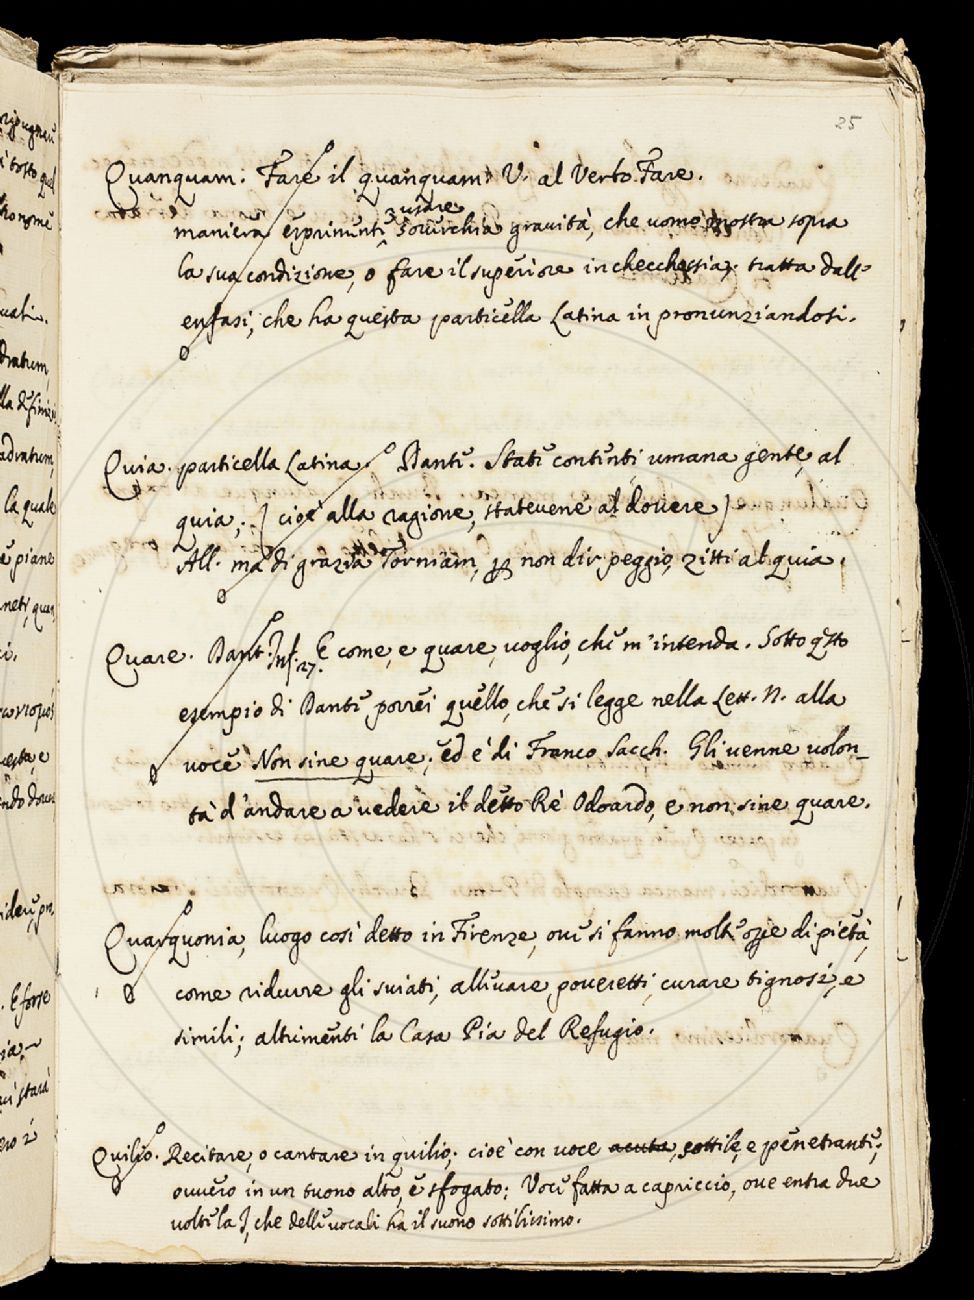 25
Quanquam. Fare il quanquam. V. al Verbo Fare.
usare
maniera esprimente soverchia gravità, che uomo mostra sopra
la sua condizione, o fare il superiore in checchessia; tratta dall'
enfasi, che ha questa particella Latina in pronunziandosi.
Quia. particella Latina. Dante. State contenti umana gente, al
quia, [cioè alla ragione, statevene al dovere]
All. ma di grazia Torniam, non dir peggio, zitti al quia.
Quare. Dant. Inf. 27. E come, e quare, voglio, che m'intenda. Sotto qsto
esempio di Dante porrei quello, che si legge nella Lett. N. alla
voce Non sine quare, ed è di Franco Sacch. Gli venne volon-
tà d'andare a vedere il detto Rè Odoardo, e non sine quare.
Quarquonia, luogo così detto in Firenze, ove si fanno molte opje di pietà,
come ridurre gli sviati, allevare poveretti, curare tignosi, e
simili; altrimenti la Casa Pia del Refugio.
Quilio. Recitare, o cantare in quilio, cioè con voce acuta, sottile, e penetrante;
ovvero in un tuono alto, e sfogato: Voce fatta a capriccio, ove entra due
volte la I, che delle vocali ha il suono sottilissimo.